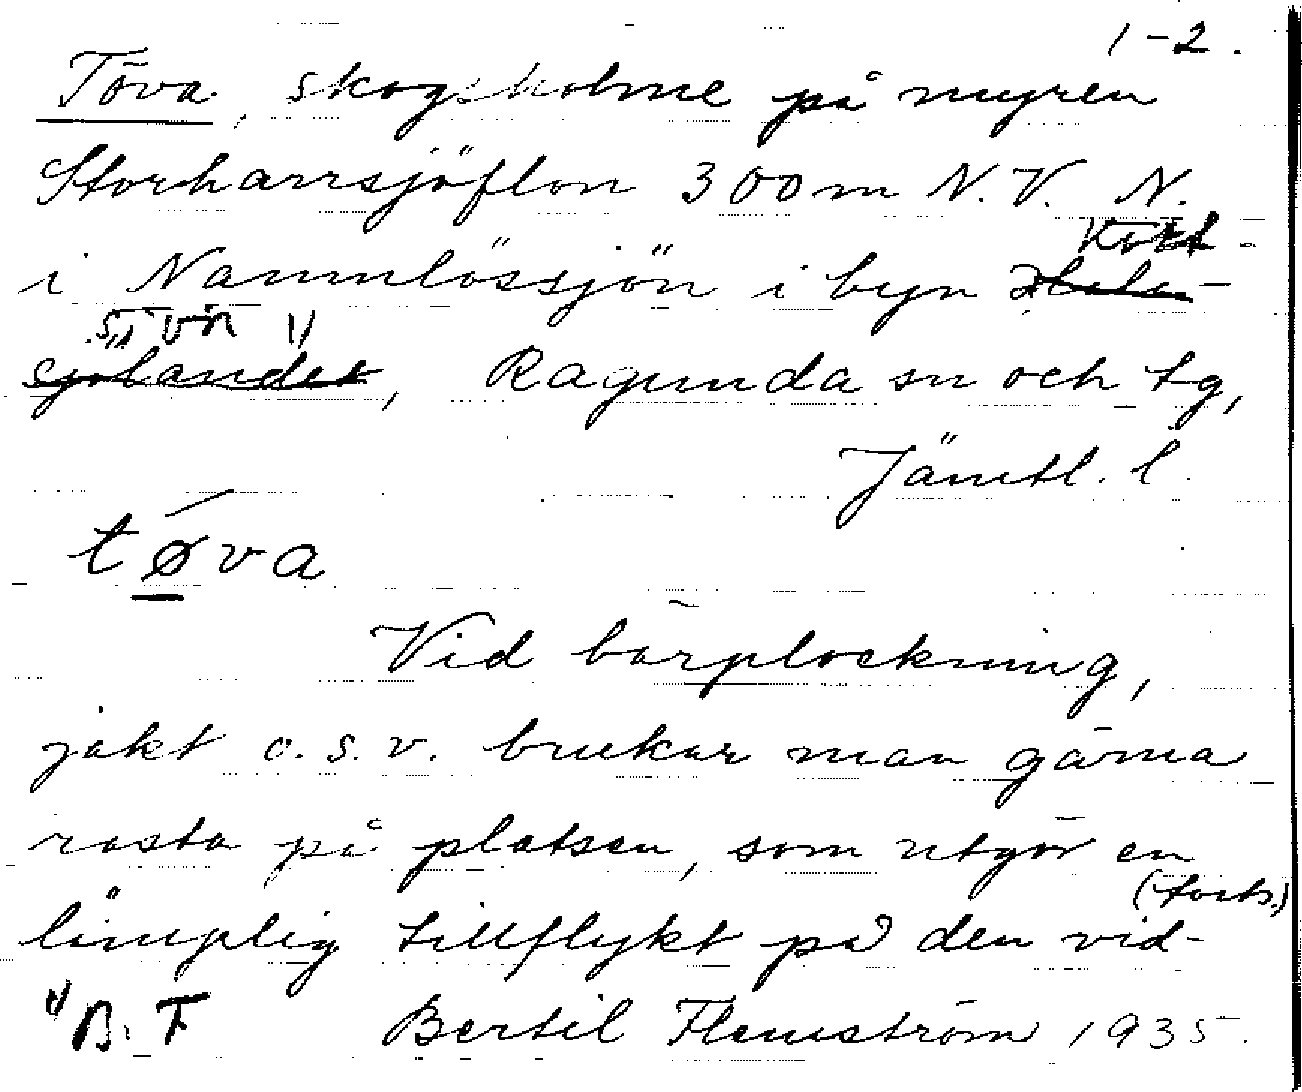 1-2.
Töva, skogsholme på myren
Storharrsjöflon 300m N.V. N.
i Namnlössjön i byn
sjön 1)
Ragunda sn och tg,
Jämtl. l.
tøva
Vid bärplockning,
jakt o.s.v. brukar man gärna
rasta på platsen, som utgör en
(forts.)
lämplig tillflykt på den vid-
1) B. F Bertil Flemström 1935.